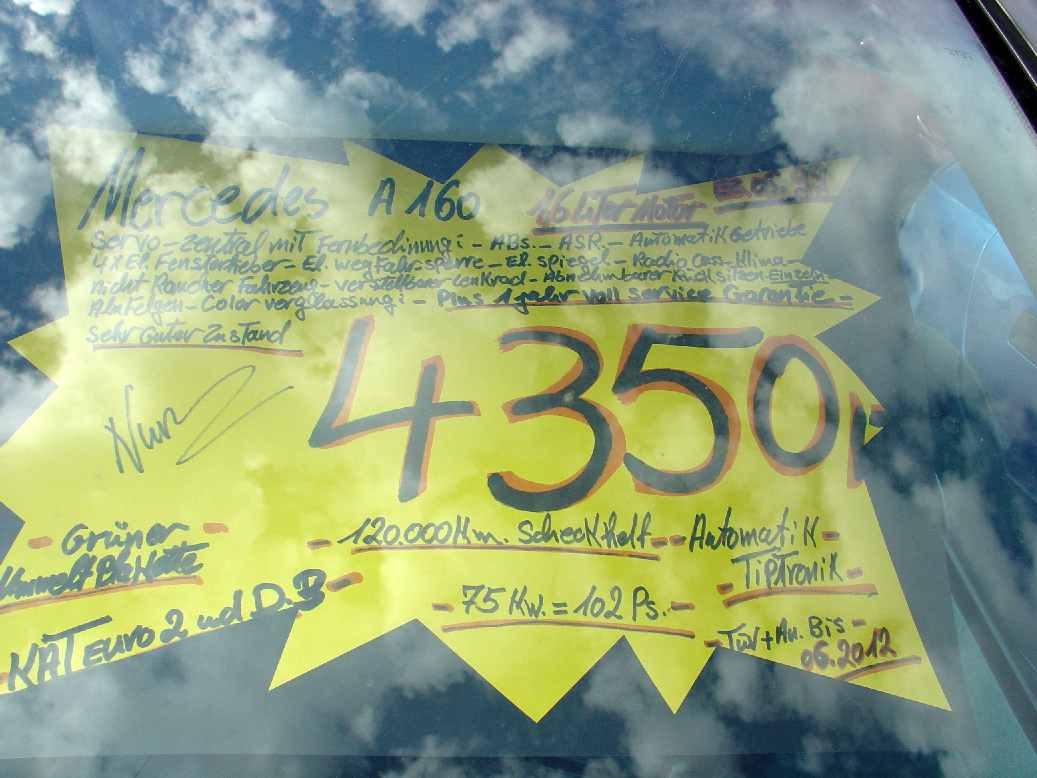 Mercedes A 160 16 Liter Motor
Servo-Zentral mit Fernbedinung:- ABS.- ASR.- Automatik Getriebe
4x El. Fensterheber- El. Wegfahrsperre- El. Spiegel- Radio Cass-Klima-
nicht Raucher Fahrzeug- verstellbarer Lenkrad- Abnehmbarer
Alu Felgen- Color verglassung:- Plus 1 Jahr voll service Garantie-
Sehr Guter Zustand
Nur
4350
-Grüner-
-120.000 Km. Scheckheft-
-Automatik-
Umwelt Plakette
-Tiptronik-
-75 Kw. = 102 Ps.-
-KAT euro 2 und D.B-
-Tüv+Au. Bis-
06.2012